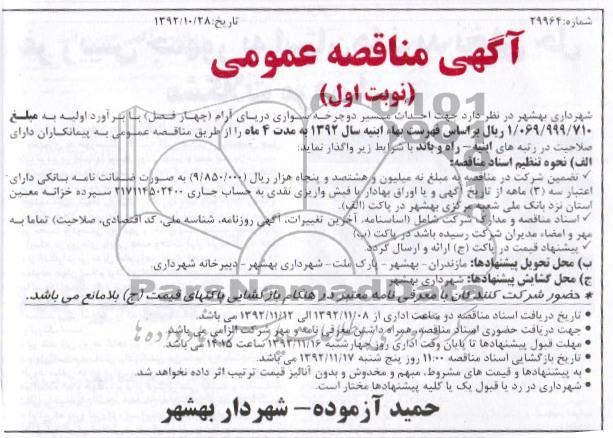 شماره: ۲۹۹۶۴
تاریخ: ۱۳۹۲/۱۰/۲۸
آگهی مناقصه عمومی
(نوبت اول)
شهرداری بهشهر در نظر دارد جهت احداث مسیر دوچرخه سواری دریای آرام (چهار فصل) با برآورد اولیه به مبلغ
۱/۰۶۹/۹۹۹/۷۱۰ ریال بر اساس فهرست بهاء ابنیه سال ۱۳۹۲ به مدت ۴ ماه را از طریق مناقصه عمومی به پیمانکاران دارای
صلاحیت در رتبه های ابنیه – راه و باند با شرایط زیر واگذار نماید:
الف) نحوه تنظیم اسناد مناقصه:
✓ تضمین شرکت در مناقصه به مبلغ نه میلیون و هشتصد و پنجاه هزار ریال (۹/۸۵۰/۰۰۰) به صورت ضمانت نامه بانکی دارای
اعتبار سه (۳) ماهه از تاریخ آگهی و یا اوراق بهادار یا فیش واریزی نقدی به حساب جاری ۲۱۷۱۱۴۵۰۲۴۰۰ سپرده خزانه معین
استان نزد بانک ملی شعبه مرکزی بهشهر در پاکت (الف).
✓ اسناد مناقصه و مدارک شرکت شامل (اساسنامه، آخرین تغییرات، آگهی روزنامه، شناسه ملی، کد اقتصادی، صلاحیت) تماما به
مهر و امضاء مدیران شرکت رسیده باشد در پاکت (ب)
✓ پیشنهاد قیمت در پاکت (ج) ارائه و ارسال گردد.
ب) محل تحویل پیشنهادها: مازندران- بهشهر – پارک ملت- شهرداری بهشهر- دبیرخانه شهرداری.
ج) محل گشایش پیشنهادها: شهرداری بهشهر
* حضور شرکت کنندگان با معرفی نامه معتبر در هنگام بازگشایی پاکتهای قیمت (ج) بلامانع می باشد.
• تاریخ دریافت اسناد مناقصه دو ساعت اداری از ۱۳۹۲/۱۱/۰۸ الی ۱۳۹۲/۱۱/۱۲ می باشد.
• جهت دریافت حضوری اسناد مناقصه، همراه داشتن معرفی نامه و مهر شرکت الزامی می باشد.
• مهلت قبول پیشنهادها تا پایان وقت اداری روز چهارشنبه ۱۳۹۲/۱۱/۱۶ ساعت ۱۴:۱۵ می باشد.
• تاریخ بازگشایی اسناد مناقصه ۱۱:۰۰ روز پنج شنبه ۱۳۹۲/۱۱/۱۷ می باشد.
• به پیشنهادها و قیمت های مشروط، مبهم و مخدوش و بدون آنالیز قیمت ترتیب اثر داده نخواهد شد.
• شهرداری در رد یا قبول یک یا کلیه پیشنهادها مختار است.
حمید آزموده – شهردار بهشهر
ParsNamadData